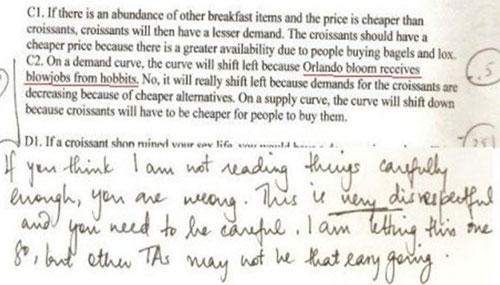 C1. If there is an abundance of other breakfast items and the price is cheaper than
croissants, croissants will then have a lesser demand. The croissants should have a
cheaper price because there is a greater availability due to people buying bagels and lox.
C2. On a demand curve, the curve will shift left because Orlando bloom receives
blowjobs from hobbits. No, it will really shift left because demands for the croissants are
decreasing because of cheaper alternatives. On a supply curve, the curve will shift down
because croissants will have to be cheaper for people to buy them.
.5
D1. If a croissant shop ruined your sex life
If you think I am not reading things carefully
enough, you are wrong. This is very disrespectful
and you need to be careful. I am letting this one
go, but other TAs may not be that easy going.